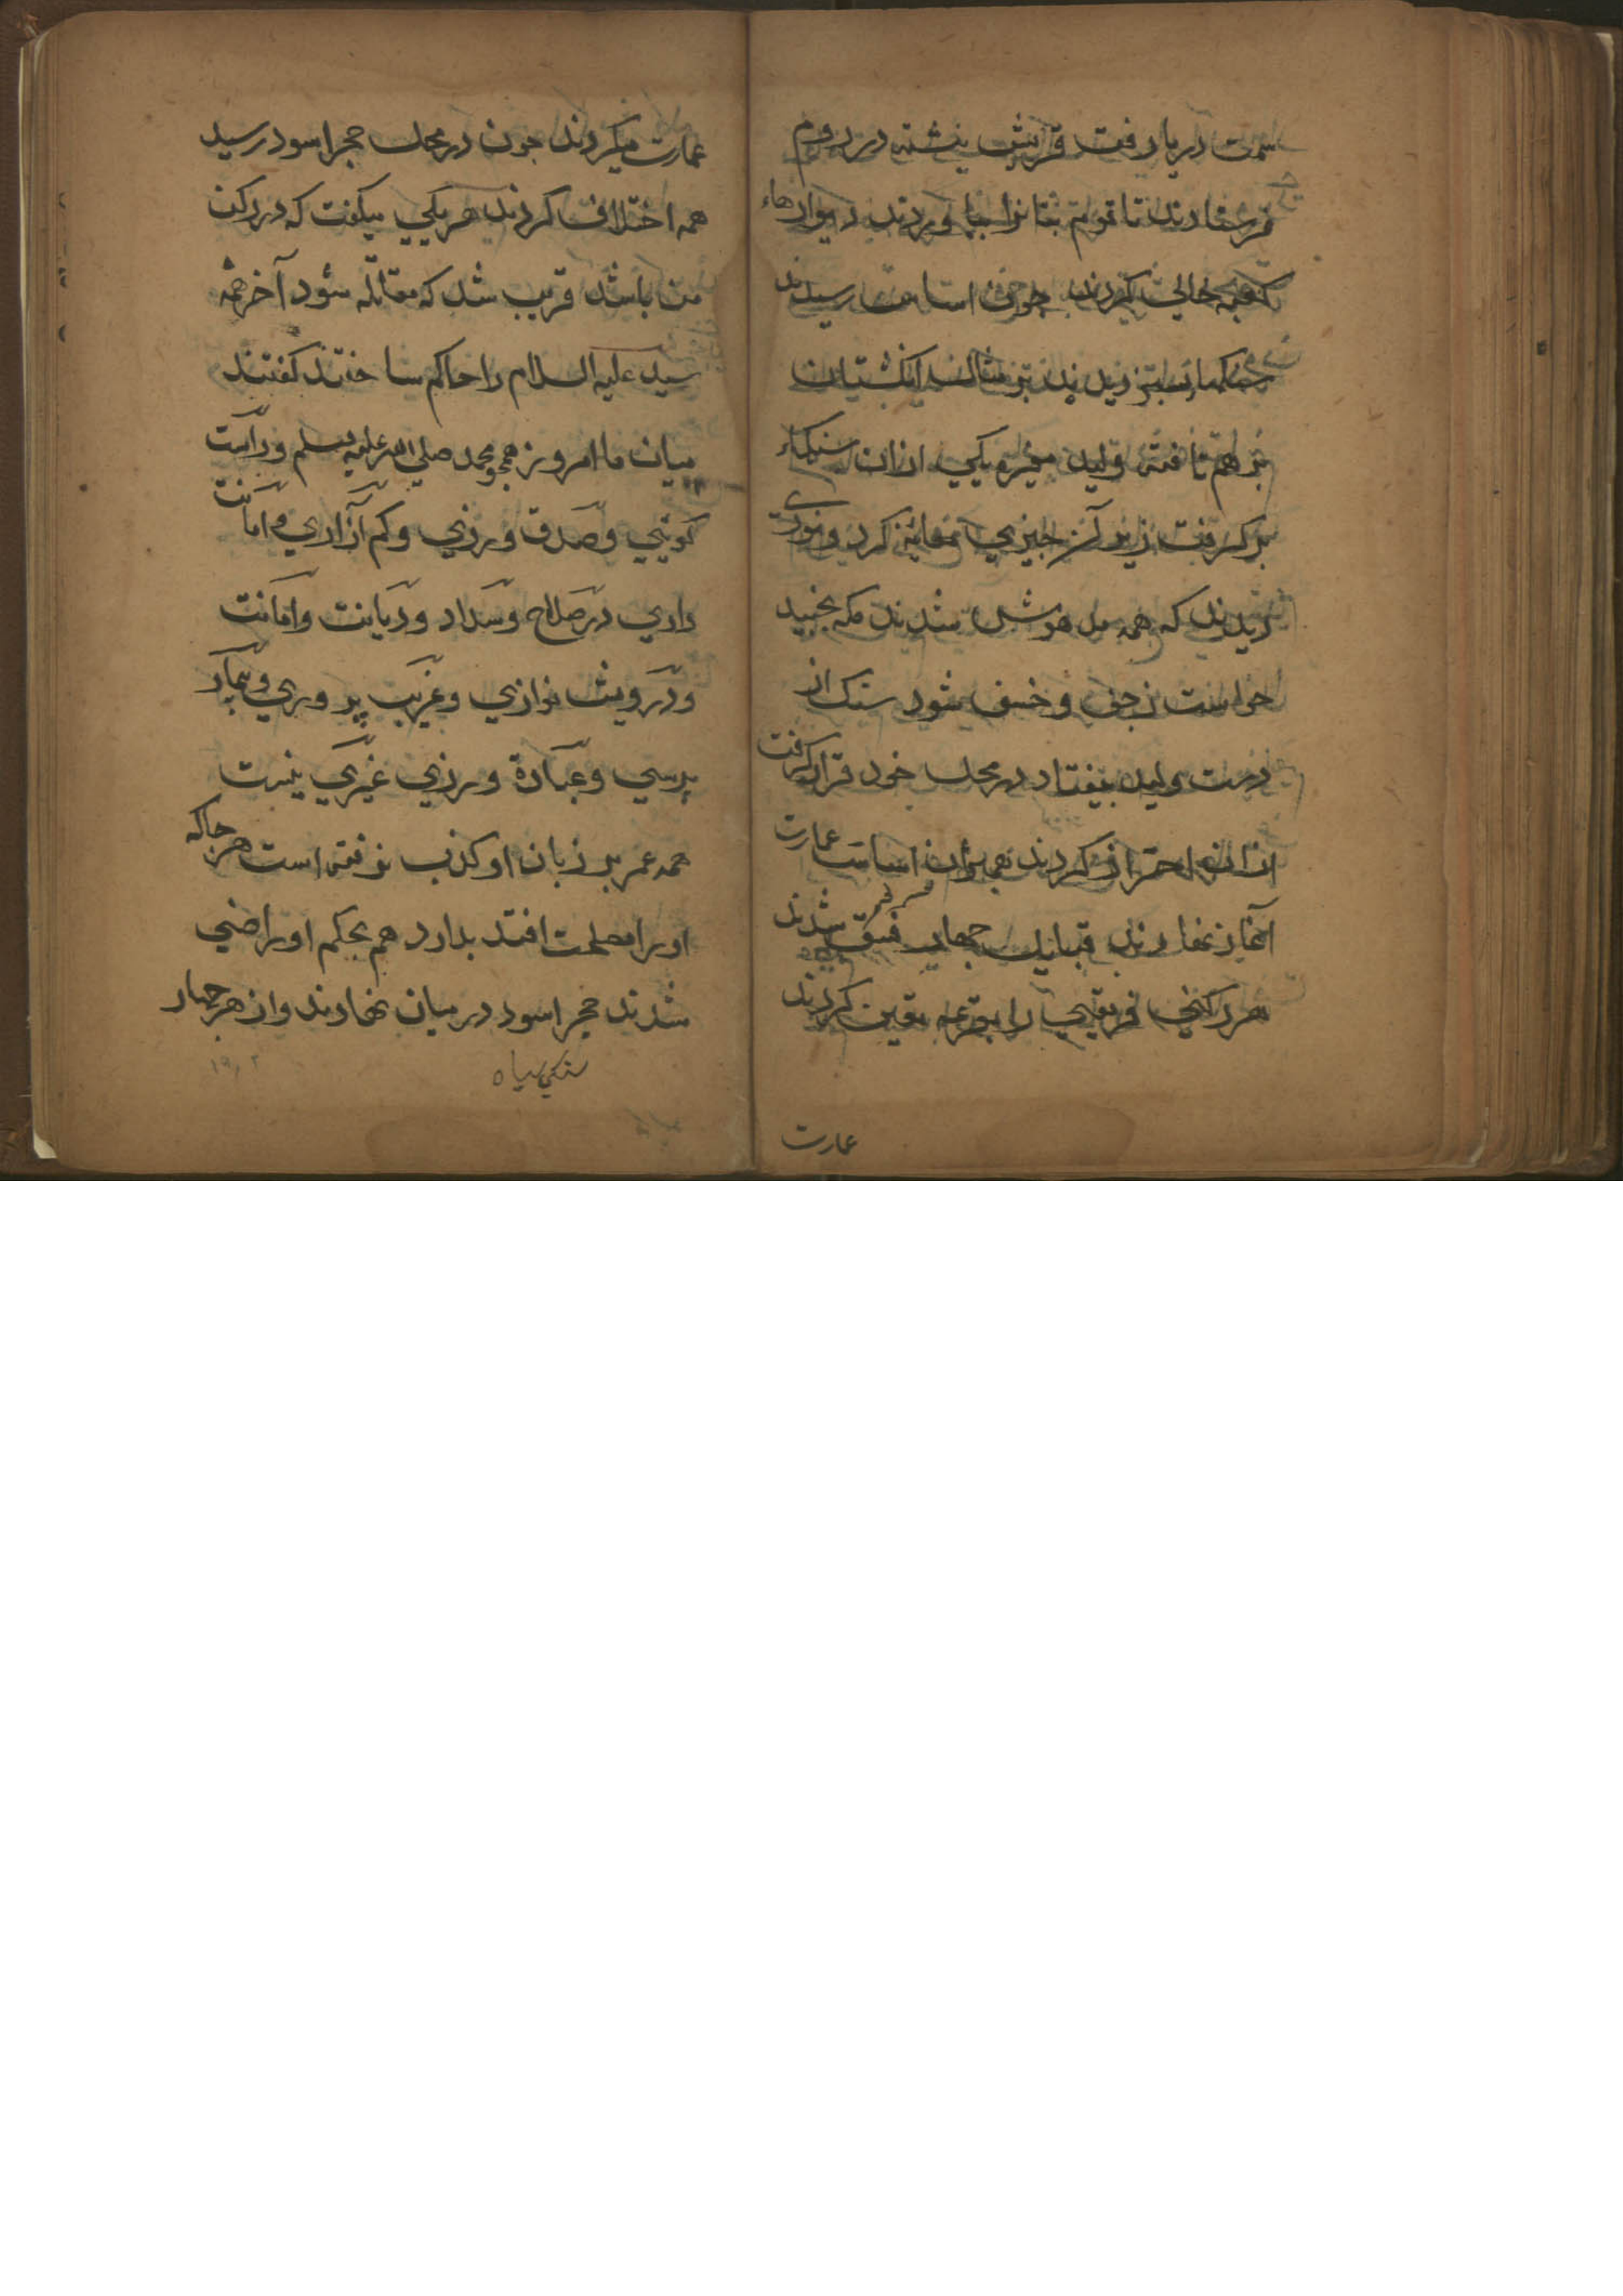 سمت دریا رفت قریش پنشته در روم
فرستادند تا قوم بتا نرا بیاوردند دیوارهاء
کعبه خالی کردند چون اساس رسیدند
سنکهای سبز دیدند بر مثال انکشتان
بر هم تافته ولید مغیره یکی ازان سنکهاء
بر کرفت زیر آن چیزی معاینه کرد و نوری
دیدند که همه بی هوش شدند مکه بجنبید
خواست زجف و خسف شود سنک از
دست ولید بیفتاد در محل خود قرار کرفت
ازان احتراز کردند همبران اساس عمارت
آغاز نهادند قبایل چهار فریق شدند
هر رکنی فریقی را بقرعه یقین کردند
عمارت
عمارت میکردند چون در محل حجر اسود رسید
همه اختلاف کردند هر یکی میکفت که در رکن
من باشد قریب شد که مقاتله شود آخر همه
سید علیه السلام را حاکم ساختند کفتند
میان ما امروز همچو محمد صلی الله علیه وسلم و راست
کویی و صدق ورزی و کم آزاری و امانت
داری در صلاح و سداد و دیانت و امانت
و درویش نوازی و غریب پروری و بیمار
پرسی و عبادة ورزی غیری نیست
همه عمر بر زبان او کذب نرفته است هر جا که
اورا مصلحت افتد بدارد هم بحکم او راضی
شدند حجر اسود در میان نهادند و از هر چهار
سنکی سیاه